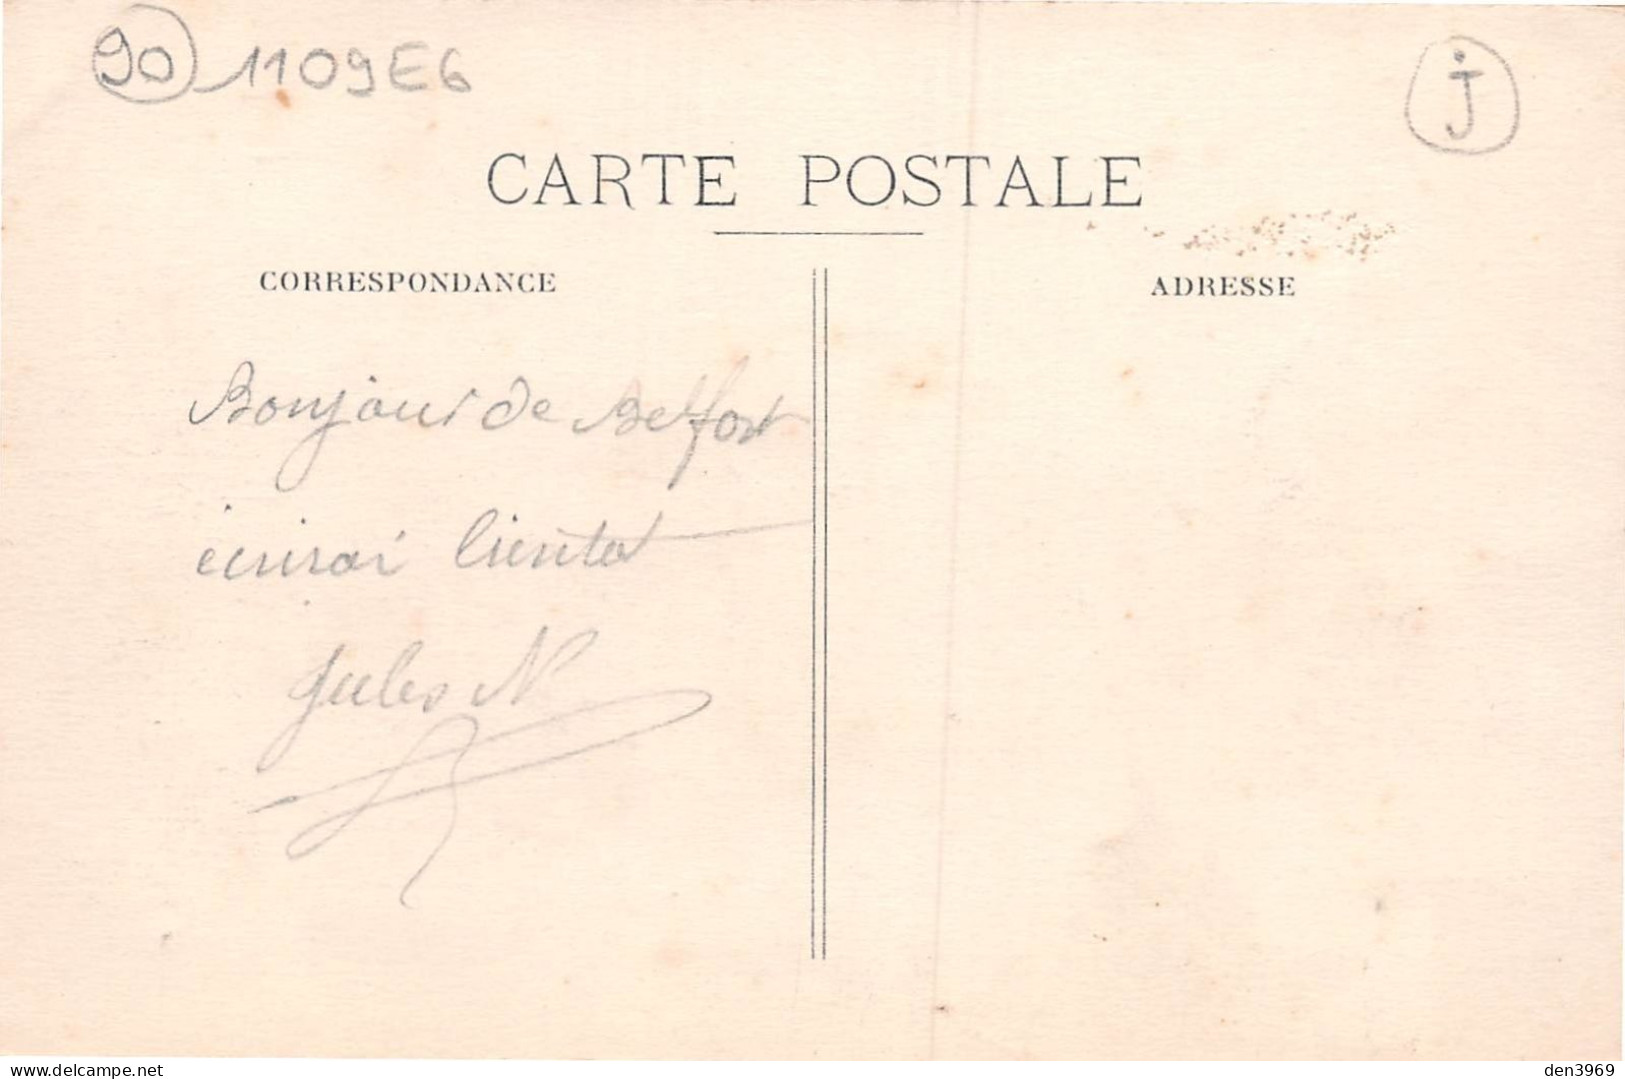 90 1109E6
j
CARTE POSTALE
CORRESPONDANCE
ADRESSE
Bonjour de Belfort
écrirai bientot
Jules N
delcampe.net
den3969